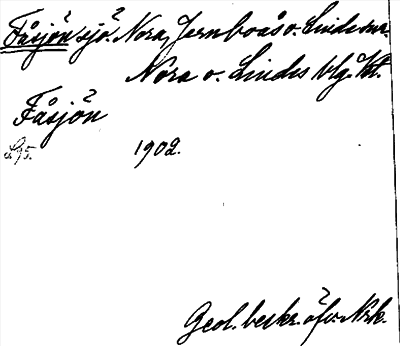 Fåsjön sjö. Nora, Jernboås o. Linde snr.
Nora o. Lindes blg. Ö lt.
Fåsjön
1902.
Geol. beskr. öfv. Nrk.